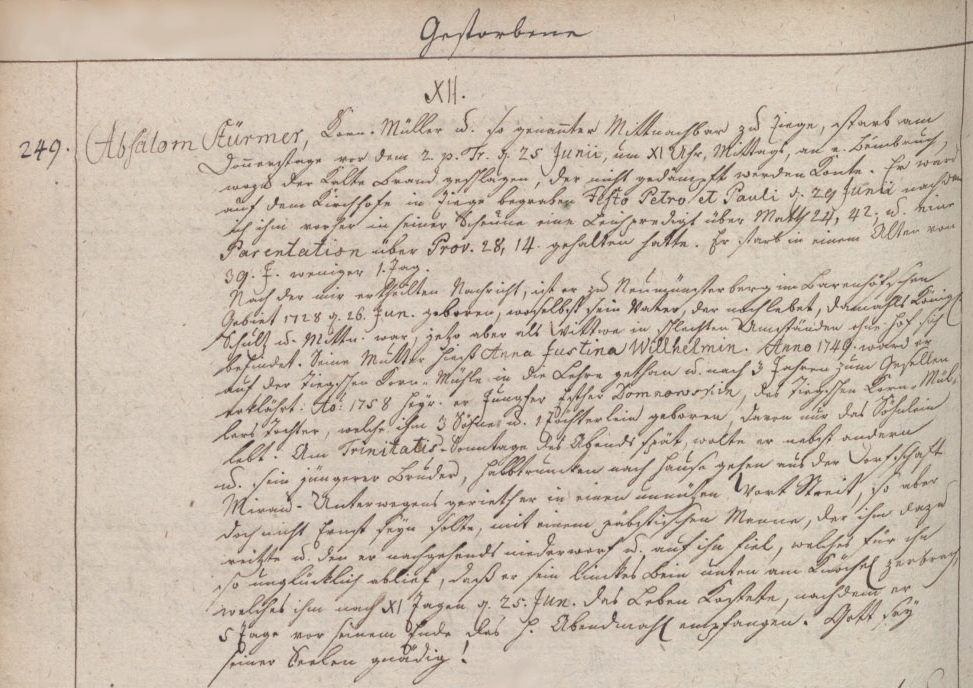 Gestorbene
XII.
249. Absalom Stürmer, Korn-Müller u. so genannter Mittnachbar zu Ziege, starb am
Donnerstage vor dem 2. p. Tr. d. 25 Junii, um XI Uhr, Mittags, an e. Beinbruch,
wozu der Kalte Brand geschlagen, der nicht gedämpft werden konte. Er ward
auf dem Kirchhofe in Ziege begraben Festo Petro et Pauli d. 29 Junii nachdem
ich ihm vorher in seiner Scheune eine Leichpredigt über Matth 24, 42. u. eine
Parentation über Prov. 28, 14. gehalten hatte. Er starb in einem Alter von
39. J. weniger 1. Tag.
Nach der mir ertheilten Nachricht, ist er zu Neumünsterberg im Bärenhöfschen
Gebiet 1728 d. 26. Jun. geboren, woselbst sein Vater, der noch lebet, damahls Königl
Schultz u. Mittn. war, jetzo aber als Wittwer in schlechten Umständen ohne Hof sich
befindet. Seine Mutter hiest Anna Justina Willhelmin. Anno 1749. ward er
auf der Ziegschen Korn-Mühle in die Lehre gethan u. nach 3 Jahren zum Gesellen
erklährt. Ao: 1758 heyr. er Jungfer Esther Domnowskin, des Ziegschen Korn-Mül-
lers Tochter, welche ihm 3 Söhne u. 1 Töchterlein geboren, davon nur das Söhnlein
lebt. Am Trinitatis-Sonntage des Abends spät, wolte er nebst andern
u. sein jüngerer Bruder, halbtruncken nach Hause gehen aus der Dorfschaft
Mirau. Unterwegens gerieth er in einen unnützen Wort Streit, so aber
doch nicht Ernst seyn solte, mit einem päbstischen Manne, der ihn dazu
reitzte u. den er nachgehends niederworf u. auf ihn fiel, welches für ihn
so unglücklich ablief, daß er sein linckes Bein unten am Knöchel zerbrach,
welches ihm nach XI Tagen d. 25. Jun. das Leben kostete, nachdem er
5 Tage vor seinem Ende das H. Abendmahl empfangen. Gott sey
seiner Seelen gnädig!